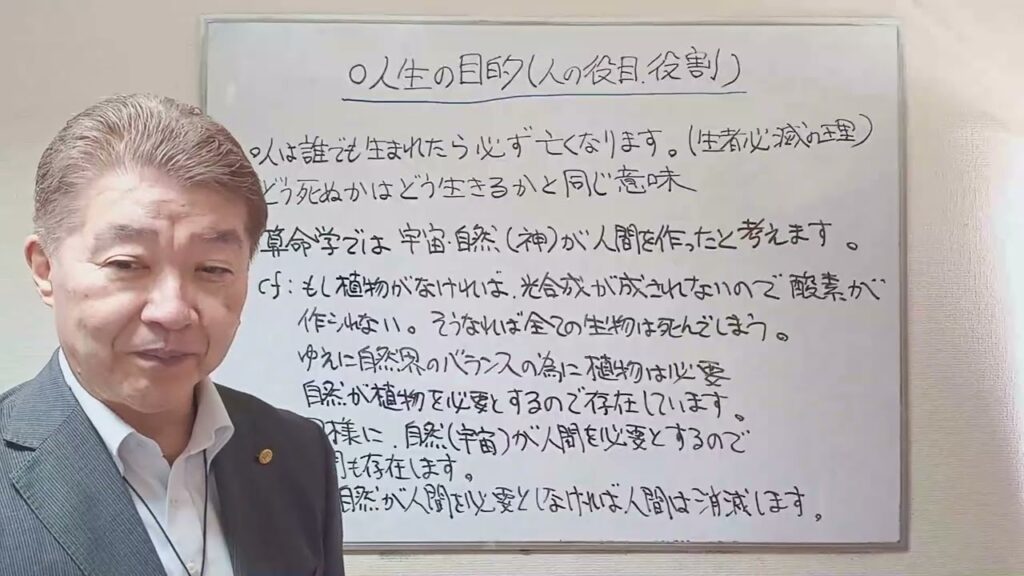 ○人生の目的(人の役目、役割)
○人は誰でも生まれたら必ず亡くなります。(生者必滅の理)
どう死ぬかはどう生きるかと同じ意味
算命学では宇宙・自然(神)が人間を作ったと考えます。
cf:もし植物がなければ、光合成が成されないので酸素が
作られない。そうなれば全ての生物は死んでしまう。
ゆえに自然界のバランスの為に植物は必要
自然が植物を必要とするので存在しています。
様に、自然(宇宙)が人間を必要とするので
も存在します。
自然が人間を必要としなければ人間は消滅します。